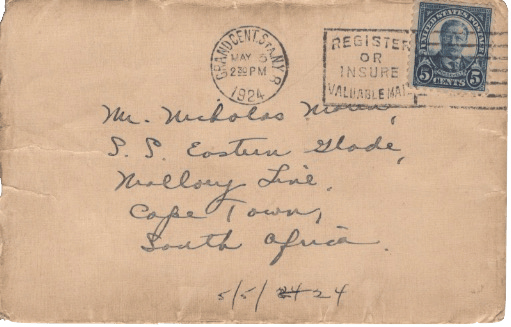 GRAND CENT. STA. N.Y.
MAY 5
2 30 PM
1924
REGISTER
OR
INSURE
VALUABLE MAIL
UNITED STATES POSTAGE
5 CENTS 5
Mr. Nicholas
S. S. Eastern Glade,
Mallory Line,
Cape Town,
South Africa.
5/5/ 24